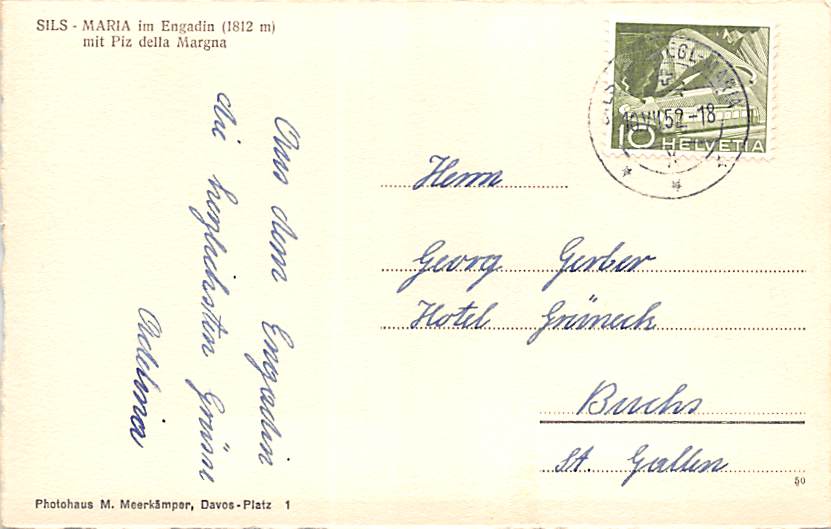 SILS - MARIA im Engadin (1812 m)
mit Piz della Margna
Aus dem Engadin
die herzlichsten Grüsse
Adelina
10.VII.52.-18
10 HELVETIA
Herrn
Georg Gerber
Hotel Grüneck
Buchs
St. Gallen
50
Photohaus M. Meerkämper, Davos-Platz 1